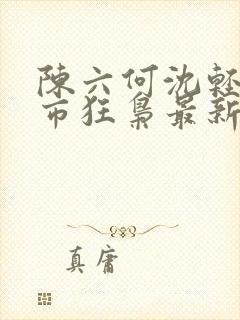 陳六何沈輕
市狂梟最新
真庸